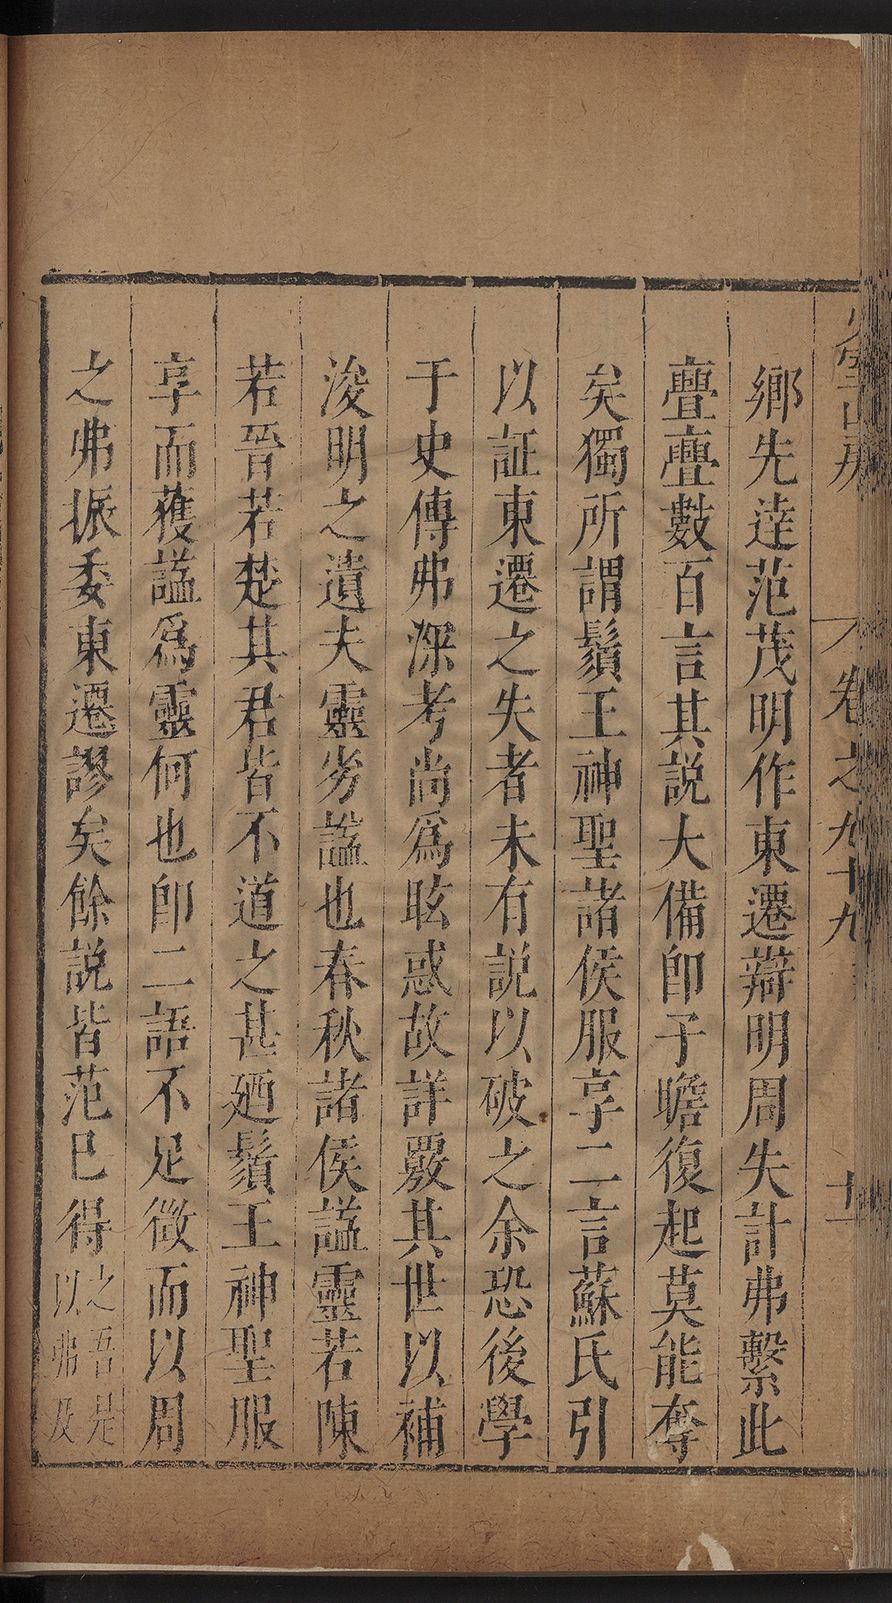 少室山房　卷之九十九　十一
鄉先逹范茂明作東遷辯明周失計弗繫此
亹亹數百言其説大備卽子瞻復起莫能奪
矣獨所謂鬚王神聖諸侯服享二言蘇氏引
以証東遷之失者未有説以破之余恐後學
于史傳弗深考尚爲眩惑故詳覈其世以補
浚明之遺夫靈劣諡也春秋諸侯諡靈若陳
若晉若楚其君皆不道之甚廼鬚王神聖服
享而獲諡爲靈何也卽二語不足徵而以周
之弗振委東遷謬矣餘説皆范巳得之吾是以弗及